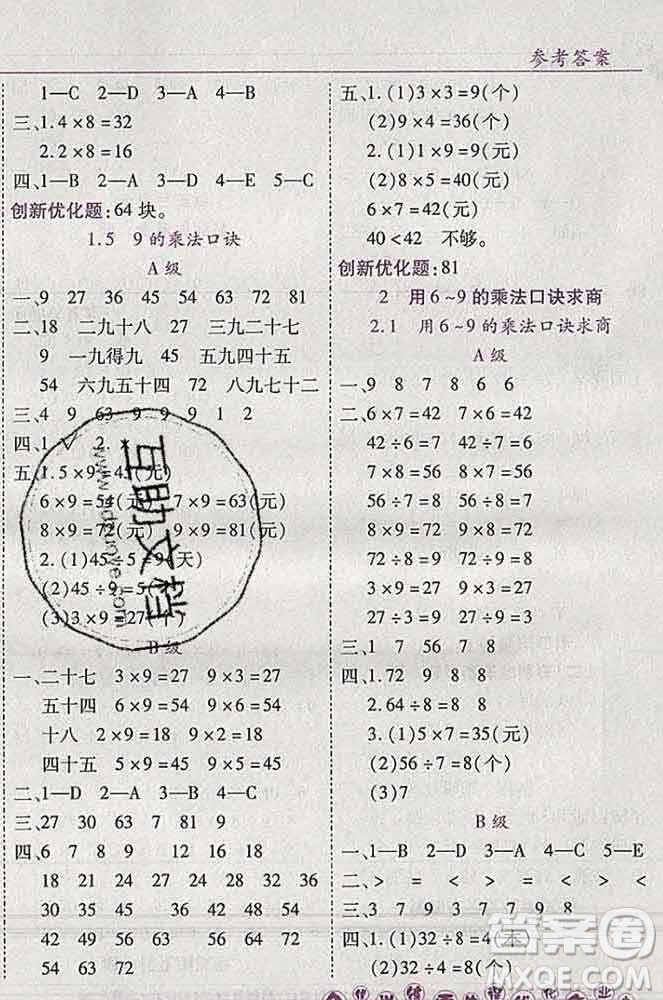 参考答案
1—C 2—D 3—A 4—B
三、1.4×8=32
2.2×8=16
四、1—B 2—D 3—A 4—E 5—C
创新优化题:64块。
1.5 9的乘法口诀
A级
一、9 27 36 45 54 63 72 81
二、18 二九十八 27 三九二十七
9 一九得九 45 五九四十五
54 六九五十四 72 八九七十二
三、4 9 63 9 9 1 2
四、1.√ 2.×
五、1.5×9=45(元)
6×9=54(元) 7×9=63(元)
8×9=72(元) 9×9=81(元)
2.(1)45÷5=9(天)
(2)45÷9=5(
(3)3×9=27(个)
B级
一、二十七 3×9=27 9×3=27
五十四 6×9=54 9×6=54
十八 2×9=18 9×2=18
四十五 5×9=45 9×5=45
二、1—D 2—A 3—B 4—C
三、27 30 63 7 81 9
四、6 7 8 9 12 16 18
18 21 24 27 24 28 32 36
30 35 45 36 42 48 54
42 49 56 63 56 64 72
54 63 72
五、1.(1)3×3=9(个)
(2)9×4=36(个)
2.(1)3×9=27(元)
(2)8×5=40(元)
6×7=42(元)
40<42 不够。
创新优化题:81
2 用6~9的乘法口诀求商
2.1 用6~9的乘法口诀求商
A级
一、9 8 7 8 6 6
二、6×7=42 7×6=42
42÷6=7 42÷7=6
7×8=56 8×7=56
56÷7=8 56÷8=7
8×9=72 9×8=72
72÷8=9 72÷9=8
3×9=27 9×3=27
27÷3=9 27÷9=3
三、1 7 56 7 8
四、1.72 9 8 8 9
2.64÷8=8
3.(1)5×7=35(元)
(2)56÷7=8(个)
(3)7
B级
一、1—B 2—D 3—A 4—C 5—E
二、> = < > = < > <
三、3 7 9 3 7 7 9 8
四、1.(1)32÷8=4(本)
(2)
互助文档
答案圈
MXQE.COM